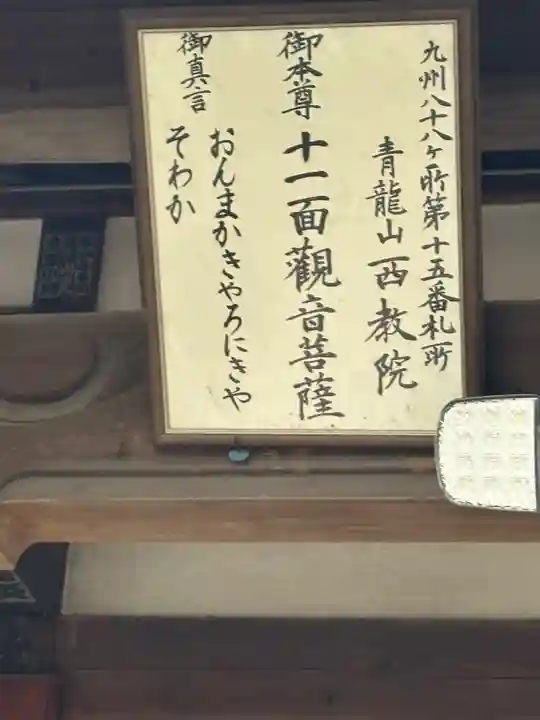 九州八十八ヶ所第十五番札所
青龍山西教院
御本尊 十一面觀音菩薩
御真言 おんまかきやろにきや
そわか